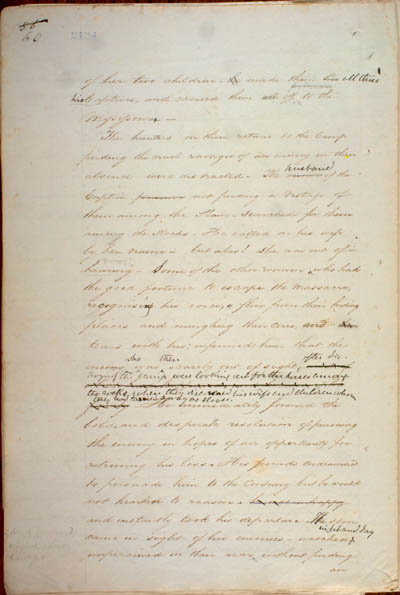 58
60
2124
of her two children. He made them all three
his captives, and carried them off to the
Missouri —
The hunters on their return to the Camp
finding the cruel ravages of an enemy in their
absence were distracted. The husband of the
Captive not finding a vestige of
them among the Slain searched for them
among the Rocks. He called on his wife
by her name — but alas! She was out of
hearing — Some of the other women, who had
the good fortune to escape the massacre,
recognising his voice, flew from their hiding
places and mingling their cries and
tears with his; informed him that the
enemy was scarcely out of sight, after des-
troying the Camp were looking out for the horses among
the rocks, when they discovered his wife and children whom
they had carried away as slaves.
He immediately formed the
bold and desperate resolution of pursuing
the enemy in hopes of an opportunity for
retrieving his loss. His friends endeavored
to persuade him to the Contrary but he would
not hearken to reason.
and instantly took his departure. He soon
came in sight of his enemies — watched
night and day
unperceived in their rear, without finding
an